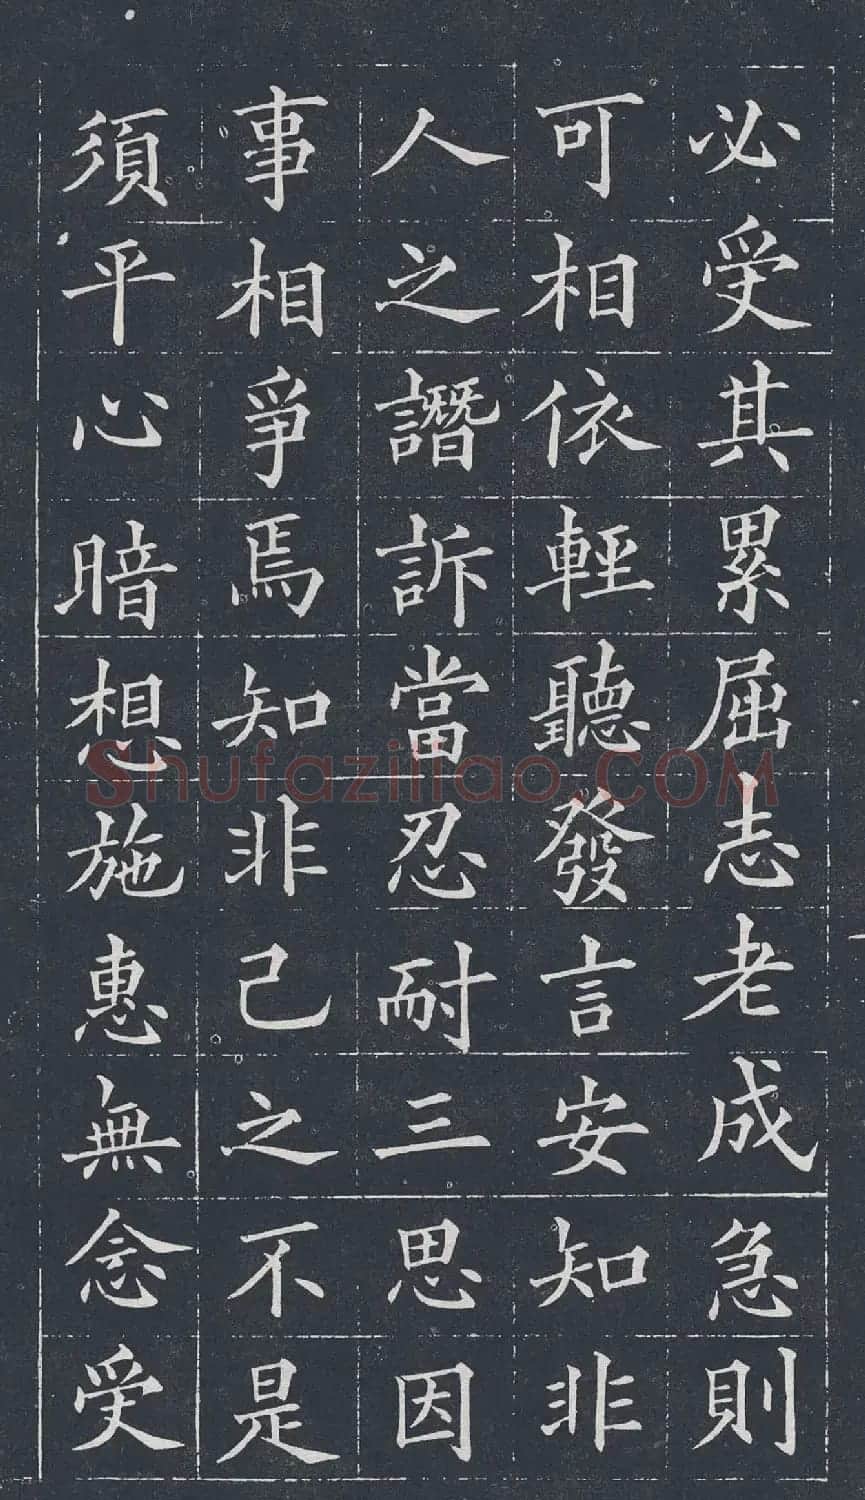 必受其累屈志老成急則
可相依輕聽發言安知非
人之譖訴當忍耐三思因
事相爭焉知非己之不是
須平心暗想施惠無念受
Shufaziliao.COM